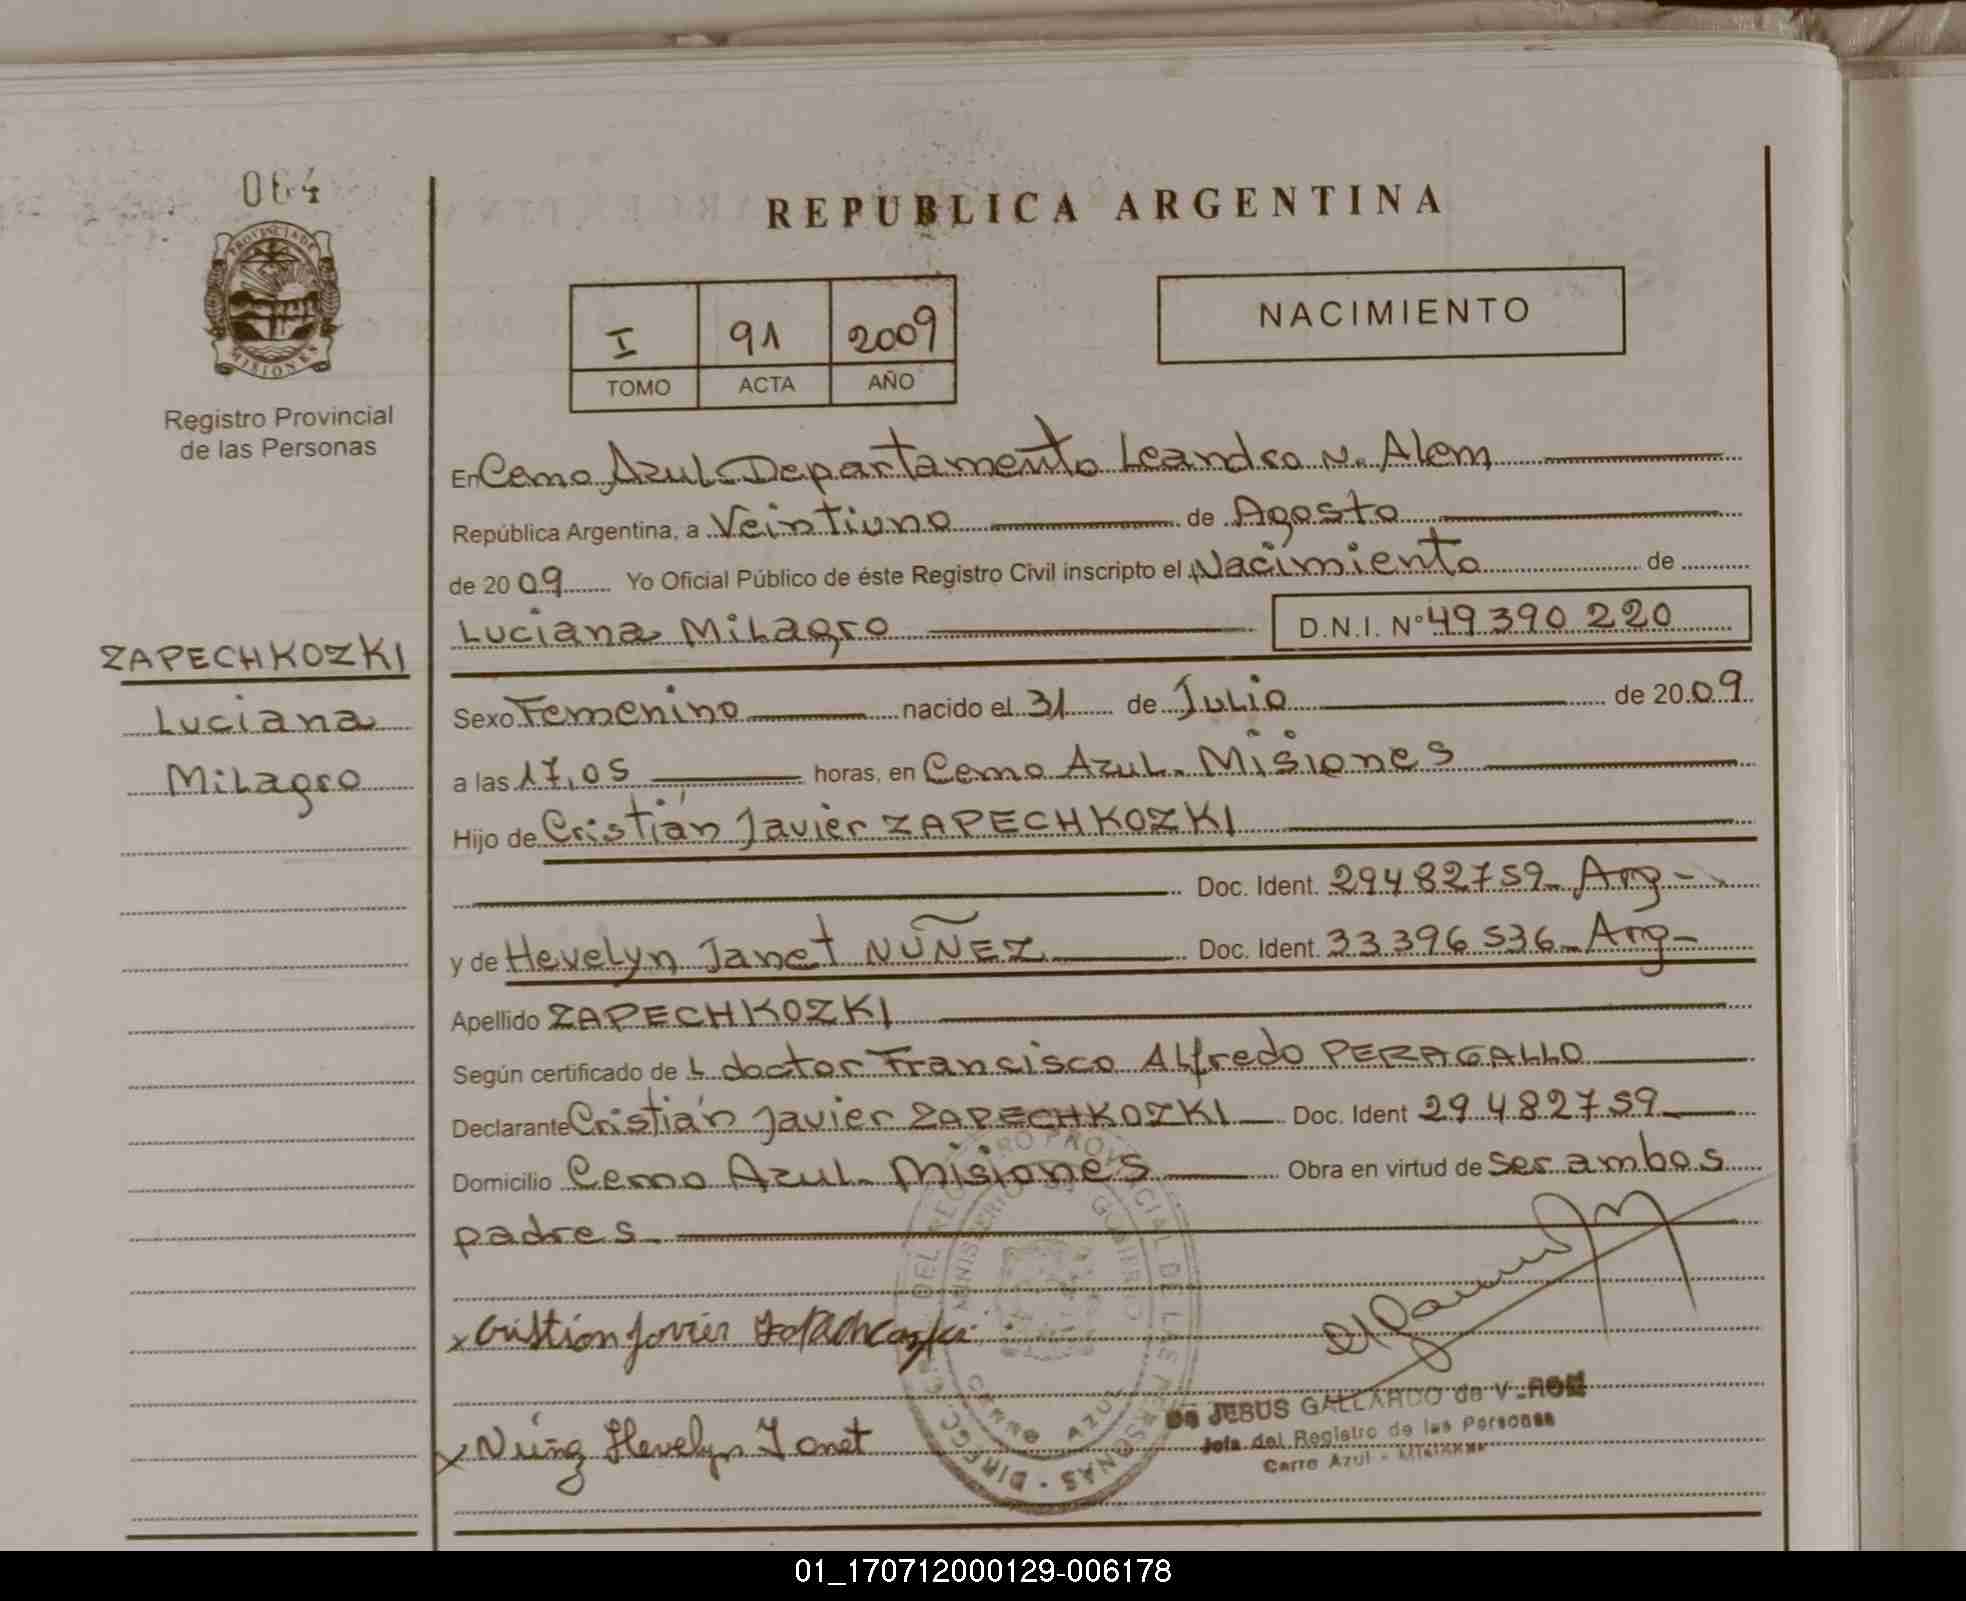 064
REPUBLICA ARGENTINA
PROVINCIA DE
MISIONES
Registro Provincial
de las Personas
I 91 2009
TOMO ACTA AÑO
NACIMIENTO
En Cerro Azul Departamento Leandro N. Alem
República Argentina, a Veintiuno de Agosto
de 20 09 Yo Oficial Público de éste Registro Civil inscripto el Nacimiento de
Luciana Milagro D.N.I. N° 49 390 220
ZAPECHKOZKI
Luciana
Milagro
Sexo Femenino nacido el 31 de Julio de 20 09
a las 17,05 horas, en Cerro Azul. Misiones
Hijo de Cristián Javier ZAPECHKOZKI
Doc. Ident. 29482759 Arg-
y de Hevelyn Janet NUÑEZ Doc. Ident. 33396536 Arg-
Apellido ZAPECHKOZKI
Según certificado de L doctor Francisco Alfredo PERAGALLO
Declarante Cristián Javier ZAPECHKOZKI Doc. Ident 29482759
Domicilio Cerro Azul. Misiones Obra en virtud de ser ambos
padres.
x Cristian Javier
x Nuñez Hevelyn Janet
DIRECC. GRAL. DEL REGISTRO PROVINCIAL DE LAS PERSONAS
MINISTERIO DE GOBIERNO
CERRO AZUL
DE JESUS GALLARDO de
Jefa del Registro de las Personas
Cerro Azul - MISIONES
01_170712000129-006178